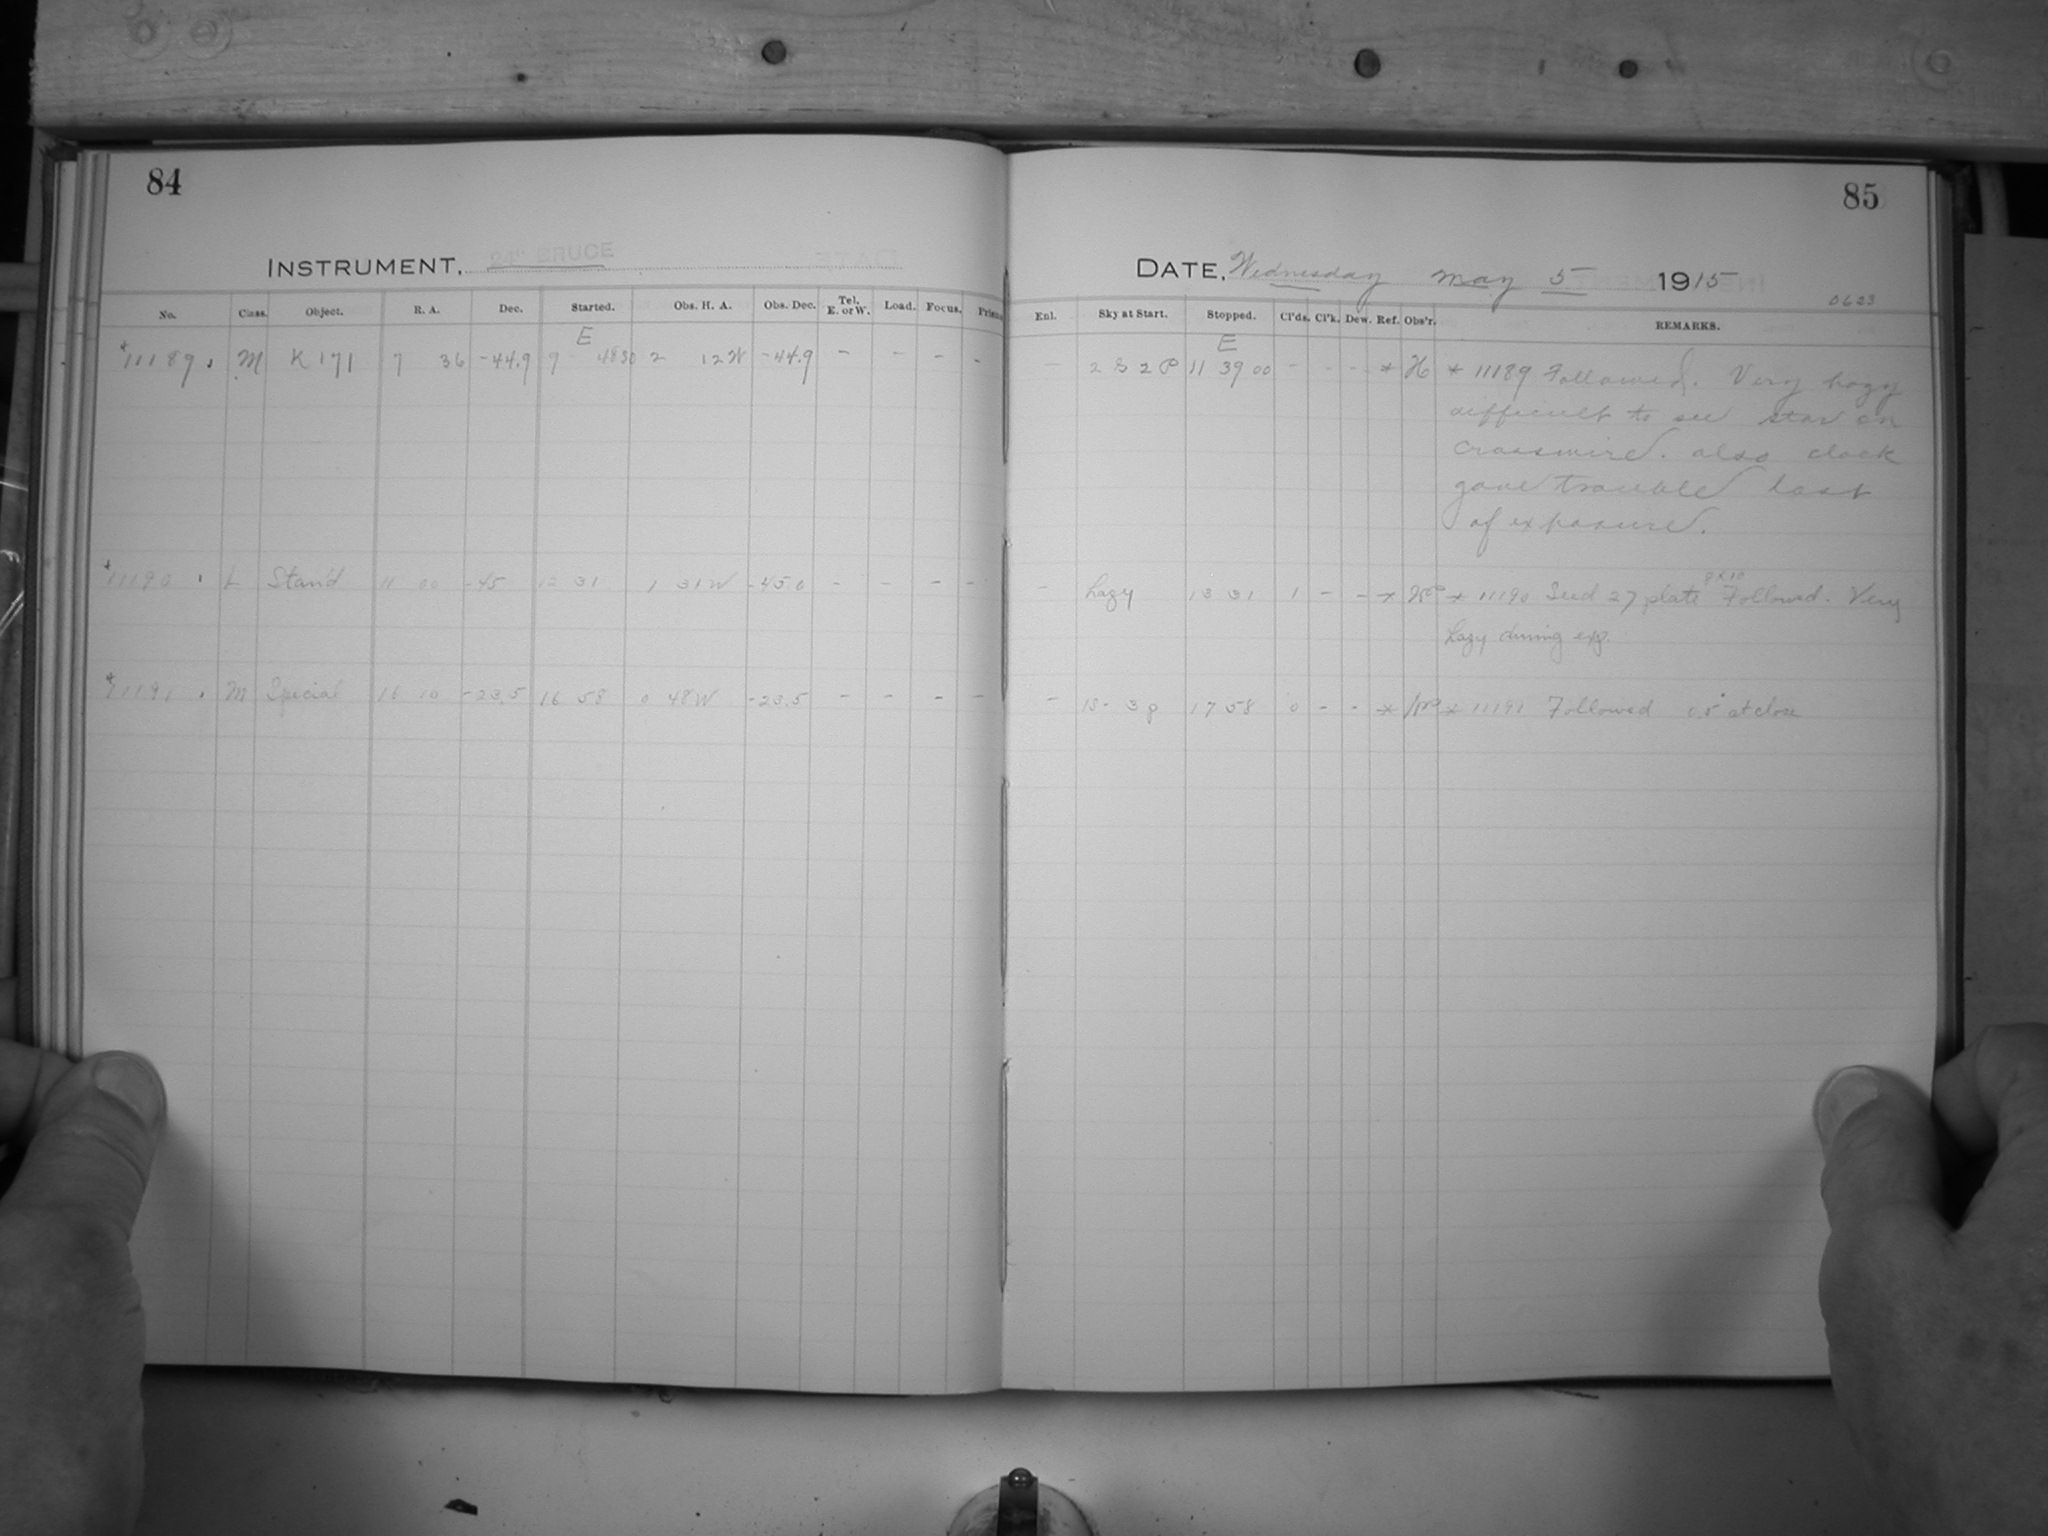 84
INSTRUMENT, 24" BRUCE
No. Class. Object. R. A. Dec. Started. Obs. H. A. Obs. Dec. Tel. E. or W. Load. Focus. Prism
E
*11189. M K 171 7 36 -44.9 9 48 30 2 12 W -44.9 - - - -
*11190. L Stand 11 00 -45 12 31 1 31 W -45 0 - - - -
*11191. M Special 16 10 -23.5 16 58 0 48 W -23.5 - - - -
85
DATE, Wednesday May 5 1915
0623
Enl. Sky at Start. Stopped. Cl'ds. Cl'k. Dew. Ref. Obs'r. REMARKS.
E
- 2 S 2 P 11 39 00 - - - * H * 11189 Followed. Very hazy
difficult to see star on
crosswire. also clock
gave trouble last
of exposure.
8x10
- hazy 13 31 1 - - * * 11190 Seed 27 plate Followed. Very
hazy during exp.
- 1S - 3p 17 58 0 - - * * 11191 Followed at close